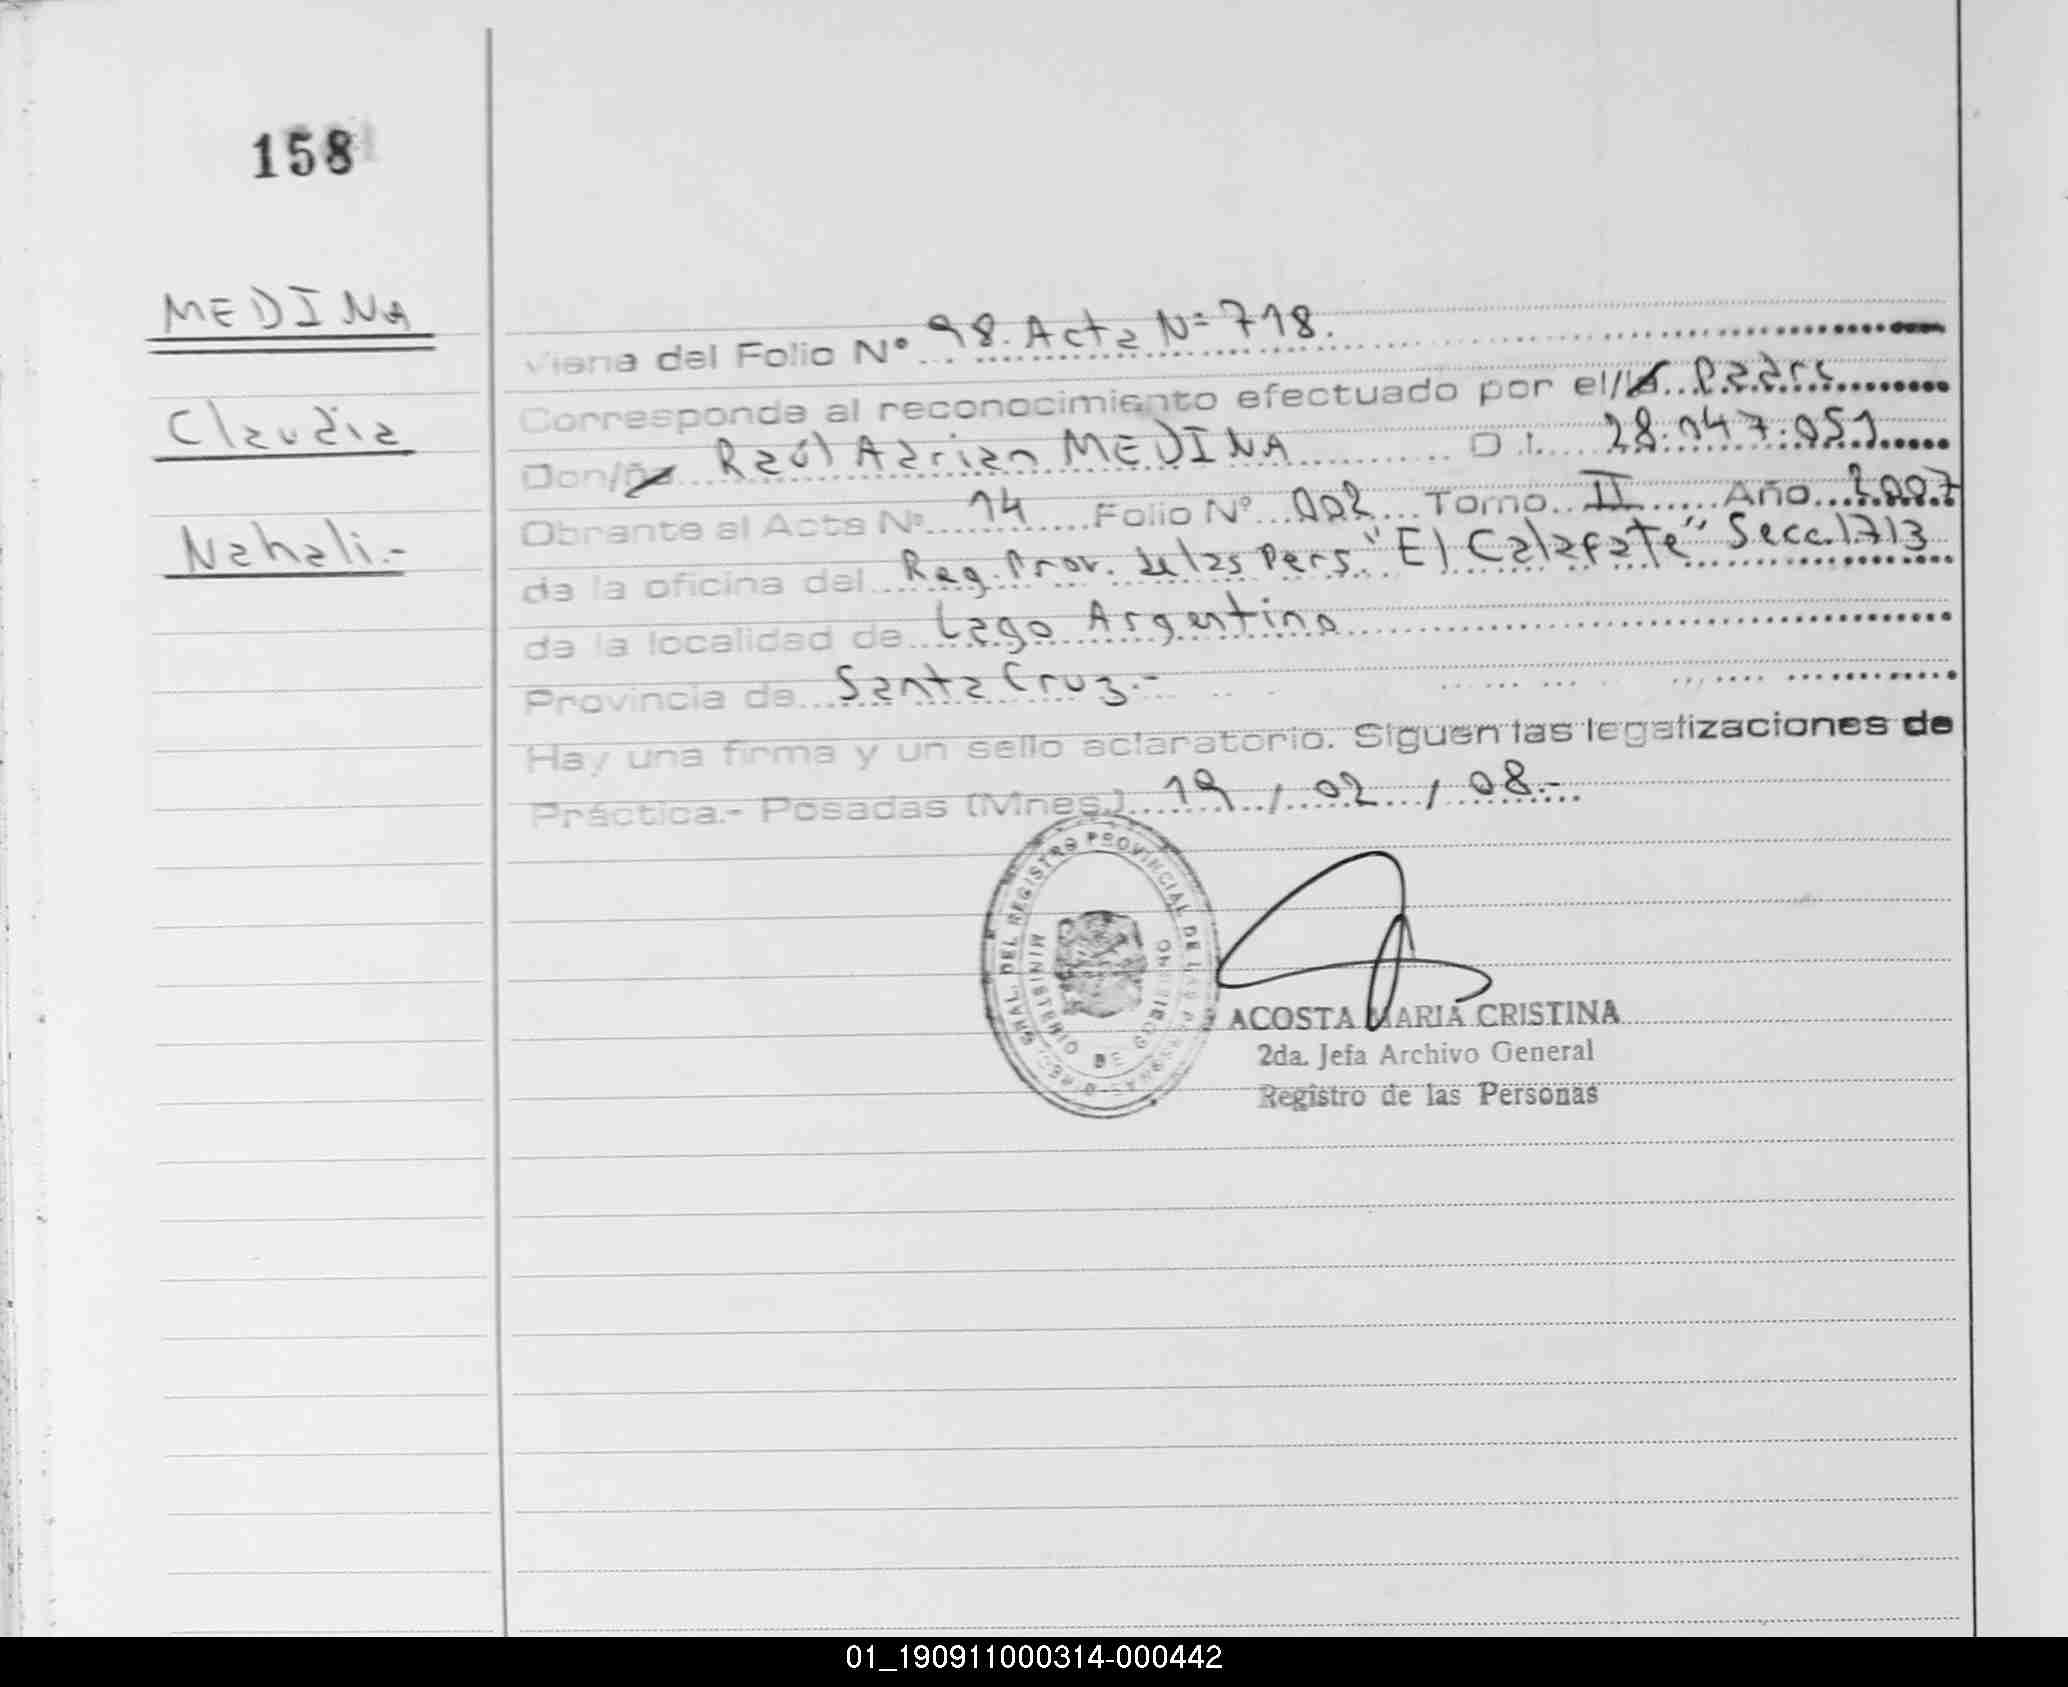 158
MEDINA
Claudia
Nahali.-
Viene del Folio N° 98. Acta N=718.
Corresponde al reconocimiento efectuado por el/la Padre
Don/ña Raúl Adrian MEDINA D.I. 28.047.051
Obrante al Acta N° 14 Folio N° 002 Tomo II Año 2007
de la oficina del Reg. Prov. de las Pers. "El Calafate" Secc. 1713
de la localidad de Lago Argentino
Provincia de Santa Cruz.-
Hay una firma y un sello aclaratorio. Siguen las legalizaciones de
Práctica.- Posadas (Mnes.) 19 / 02 / 08.-
GRAL. DEL REGISTRO PROVINCIAL DE LAS PERSONAS
MINISTERIO DE GOBIERNO
ACOSTA MARIA CRISTINA
2da. Jefa Archivo General
Registro de las Personas
01_190911000314-000442